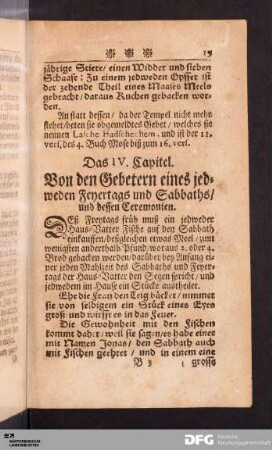 19
jährige Stiere / einen Widder und sieben
Schaafe: Zu einem jedweden Opffer ist
der zehende Theil eines Maases Meels
gebracht / daraus Kuchen gebacken wor-
den.
An statt dessen / da der Tempel nicht mehr
stehet / beten sie obgemeldtes Gebet / welches sie
nennen und ist der 11.
versl. des 4. Buch Mose biß zum 16. verl.
Das IV. Capitel.
Von den Gebetern eines jed-
weden Feyertags und Sabbaths /
und dessen Ceremonien.
DEß Freytags früh muß ein jedweder
Haus-Vatter Fische auf den Sabbath
einkauffen / desgleichen etwas Meel / zum
wenigsten anderthalb Pfund / woraus 2. oder 4.
Brod gebacken werden / darüber bey Anfang ei-
ner jeden Mahlzeit des Sabbaths und Feyer-
tags der Haus-Vatter den Segen spricht / und
jedwedem im Hause ein Stücke austheilet.
Ehe die Frau den Teig bäcket / nimmet
sie von selbigem ein Stück eines Eyes
groß und wirfft es in das Feuer.
Die Gewohnheit mit den Fischen
kommt daher / weil sie sagen / es habe einer
mit Namen Jonas / den Sabbath auch
mit Fischen geehret / und in einem eine
B 3 grosse
SLUB
DFG